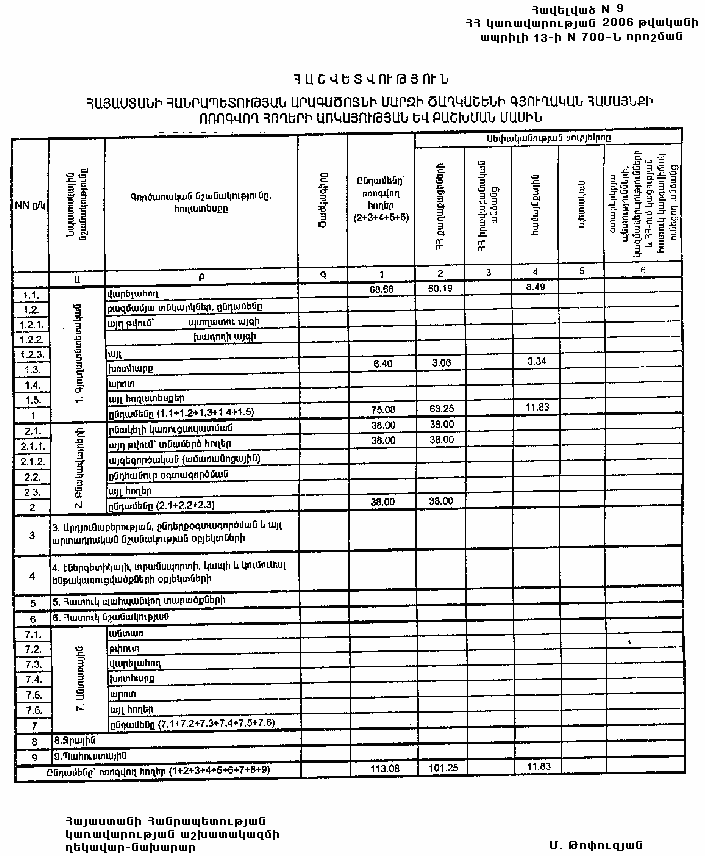 Հավելված N 9
ՀՀ կառավարության 2006 թվականի
ապրիլի 13-ի N 700-Ն որոշման
ՀԱՇՎԵՏՎՈՒԹՅՈՒՆ
ՀԱՅԱՍՏԱՆԻ ՀԱՆՐԱՊԵՏՈՒԹՅԱՆ ԱՐԱԳԱԾՈՏՆԻ ՄԱՐԶԻ ԾԱՂԿԱՇԵՆԻ ԳՅՈՒՂԱԿԱՆ ՀԱՄԱՅՆՔԻ
ՈՌՈԳՎՈՂ ՀՈՂԵՐԻ ԱՌԿԱՅՈՒԹՅԱՆ ԵՎ ԲԱՇԽՄԱՆ ՄԱՍԻՆ
NN ը/կ
Նպատակային նշանակությունը
Գործառնական նշանակությունը, հողատեսքը
Ծածկագիրը
Ընդամենը՝ ոռոգվող հողեր (2+3+4+5+6)
Սեփականության սուբյեկտը
ՀՀ քաղաքացիների
ՀՀ իրավաբանական անձանց
համայնքային
պետական
օտարերկրյա պետությունների, կազմակերպությունների և ՀՀ-ում կացության հատուկ կարգավիճակ ունեցող անձանց
Ա Բ Գ 1 2 3 4 5 6
1. Գյուղատնտեսական
1.1. վարելահող 68.68 60.19 8.49
1.2. բազմամյա տնկարկներ, ընդամենը
1.2.1. այդ թվում՝ պտղատու այգի
1.2.2. խաղողի այգի
1.2.3. այլ
1.3. խոտհարք 6.40 3.06 3.34
1.4. արոտ
1.5. այլ հողատեսքեր
1 ընդամենը (1.1+1.2+1.3+1.4+1.5) 75.08 63.25 11.83
2. Բնակավայրերի
2.1. բնակելի կառուցապատման 38.00 38.00
2.1.1. այդ թվում՝ տնամերձ հողեր 38.00 38.00
2.1.2. այգեգործական (ամառանոցային)
2.2. ընդհանուր օգտագործման
2.3. այլ հողեր
2 ընդամենը (2.1+2.2+2.3) 38.00 38.00
3 3. Արդյունաբերության, ընդերքօգտագործման և այլ
արտադրական նշանակության օբյեկտների
4 4. Էներգետիկայի, տրանսպորտի, կապի և կոմունալ
ենթակառուցվածքների օբյեկտների
5 5. Հատուկ պահպանվող տարածքների
6 6. Հատուկ նշանակության
7. Անտառային
7.1. անտառ
7.2. թփուտ
7.3. վարելահող
7.4. խոտհարք
7.5. արոտ
7.6. այլ հողեր
7 ընդամենը (7.1+7.2+7.3+7.4+7.5+7.6)
8 8.Ջրային
9 9.Պահուստային
Ընդամենը՝ ոռոգվող հողեր (1+2+3+4+5+6+7+8+9) 113.08 101.25 11.83
Հայաստանի Հանրապետության
կառավարության աշխատակազմի
ղեկավար-նախարար Մ. Թոփուզյան